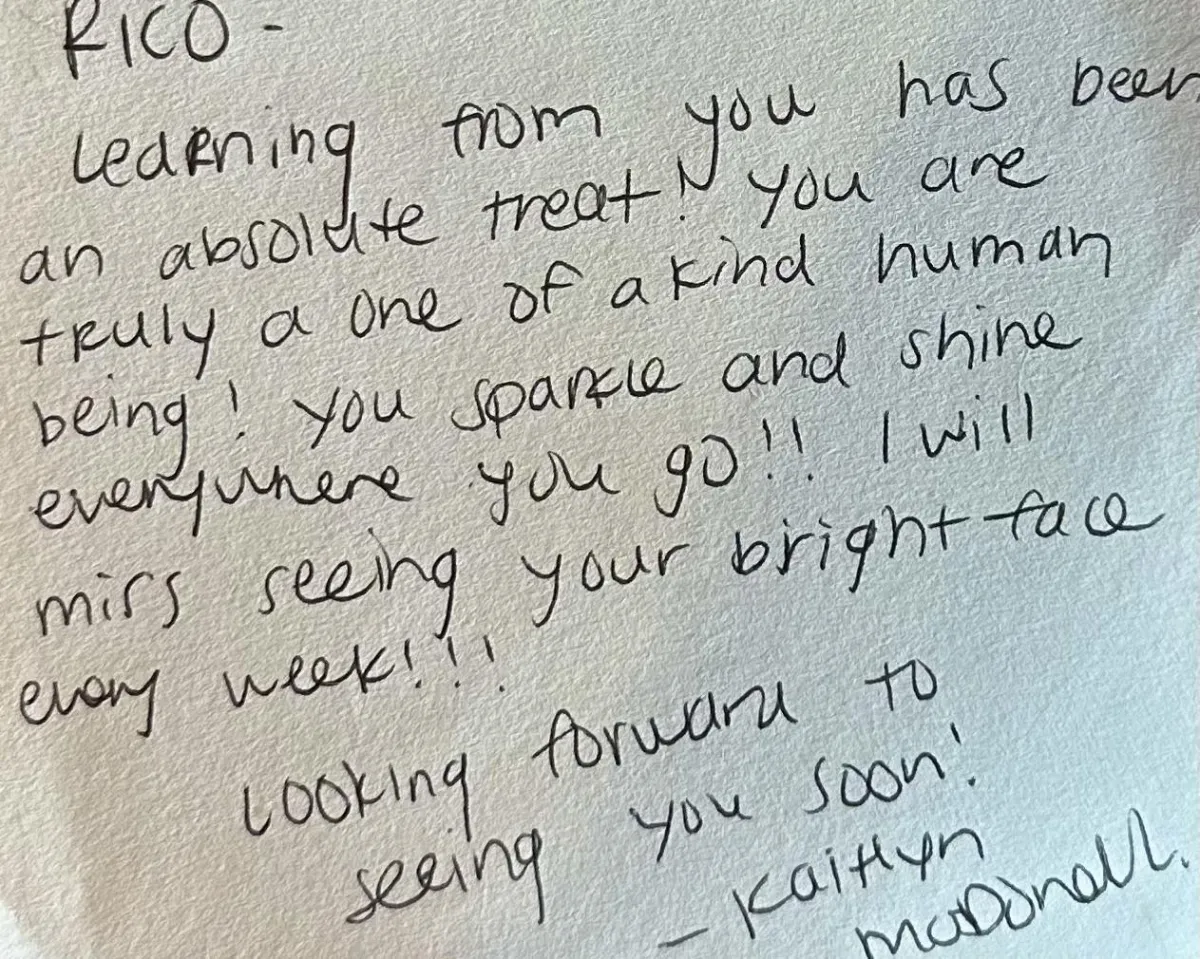 RICO -
Learning from you has been
an absolute treat! You are
truly a one of a kind human
being! You sparkle and shine
everywhere you go!! I will
miss seeing your bright face
every week!!!
Looking forward to
seeing you soon!
- Kaitlyn
McDonall.